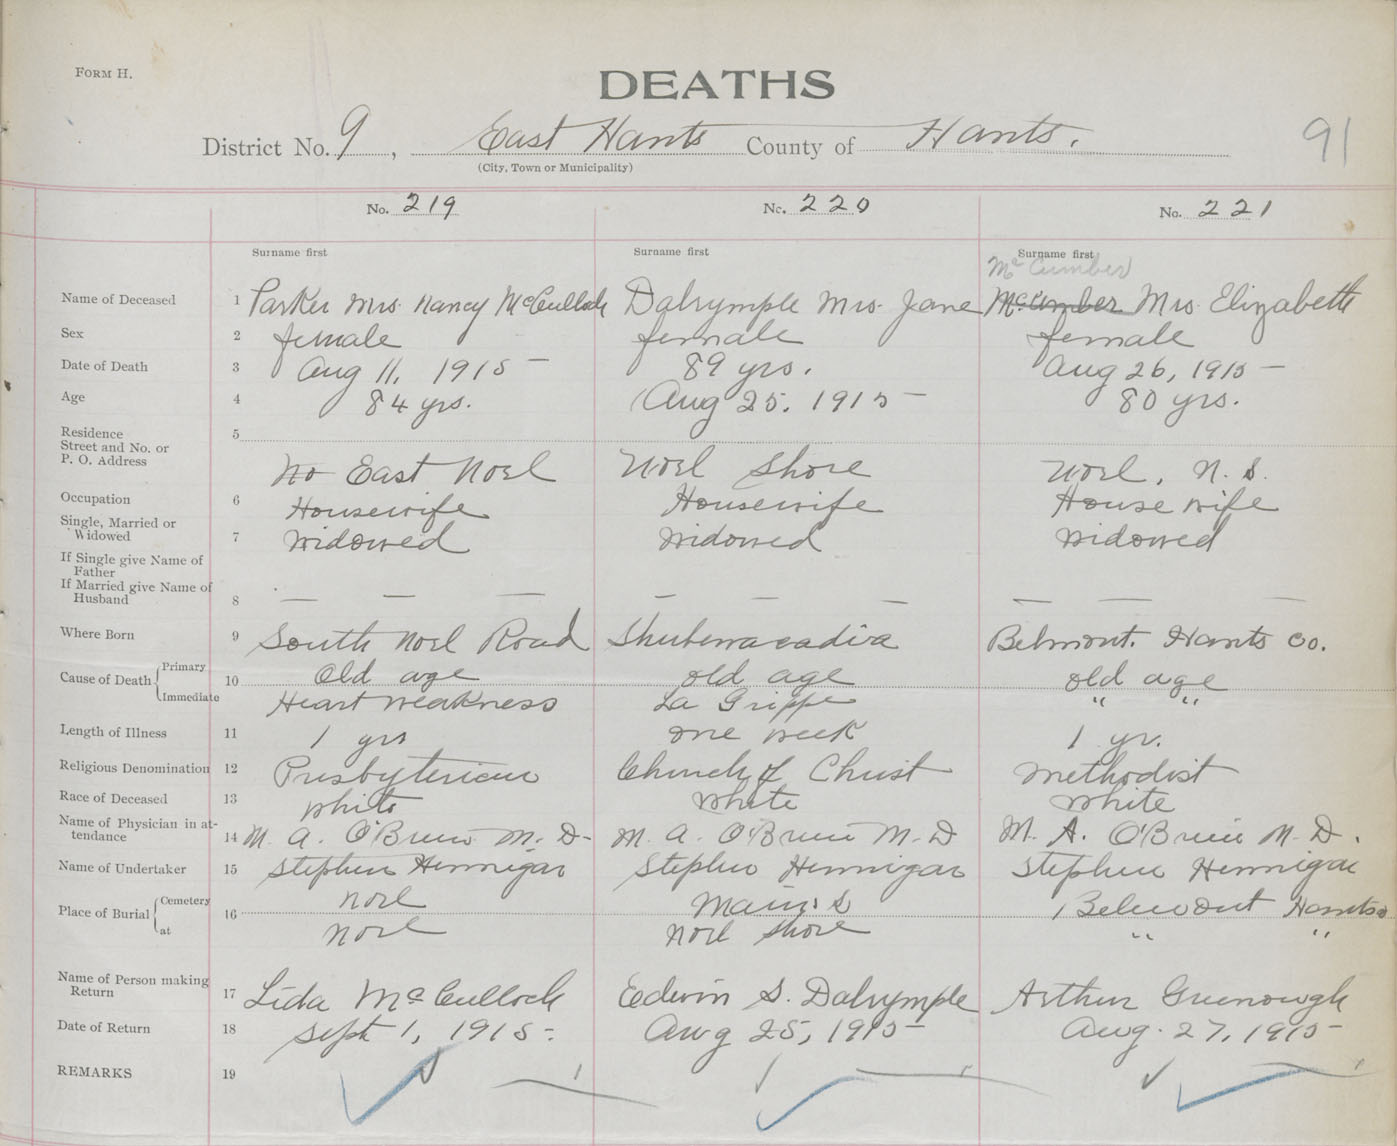 FORM H.
DEATHS
District No. 9, East Hants County of Hants.
91
(City, Town or Municipality)
No. 219 No. 220 No. 221
Surname first Surname first Surname first
McCumber
Name of Deceased 1 Parker Mrs. Nancy McCulloch Dalrymple Mrs. Jane McCumber Mrs. Elizabeth
Sex 2 female female female
Date of Death 3 Aug 11, 1915 – 89 yrs. Aug 26, 1915 –
Age 4 84 yrs. Aug 25. 1915 – 80 yrs.
Residence 5
Street and No. or
P. O. Address No East Noel Noel Shore Noel, N. S.
Occupation 6 Housewife Housewife House wife
Single, Married or
Widowed 7 Widowed Widowed Widowed
If Single give Name of
Father
If Married give Name of
Husband 8 — — — — — — — — —
Where Born 9 South Noel Road Shubenacadia Belmont. Hants Co.
Cause of Death Primary 10 Old age old age old age
Immediate Heart weakness La Grippe " "
Length of Illness 11 1 yrs one week 1 yr.
Religious Denomination 12 Presbyterian Church of Christ Methodist
Race of Deceased 13 white White White
Name of Physician in at-
tendance 14 M. A. O'Brien M. D – M. A. O'Brien M. D M. A. O'Brien M. D.
Name of Undertaker 15 Stephen Hennigar Stephen Hennigar Stephen Hennigar
Place of Burial Cemetery 16 Noel Main's Belmont Hants
at Noel Noel Shore " "
Name of Person making
Return 17 Lida McCulloch Edwin S. Dalrymple Arthur Greenough
Date of Return 18 Sept 1, 1915. Aug 25, 1915 – Aug. 27, 1915 –
REMARKS 19